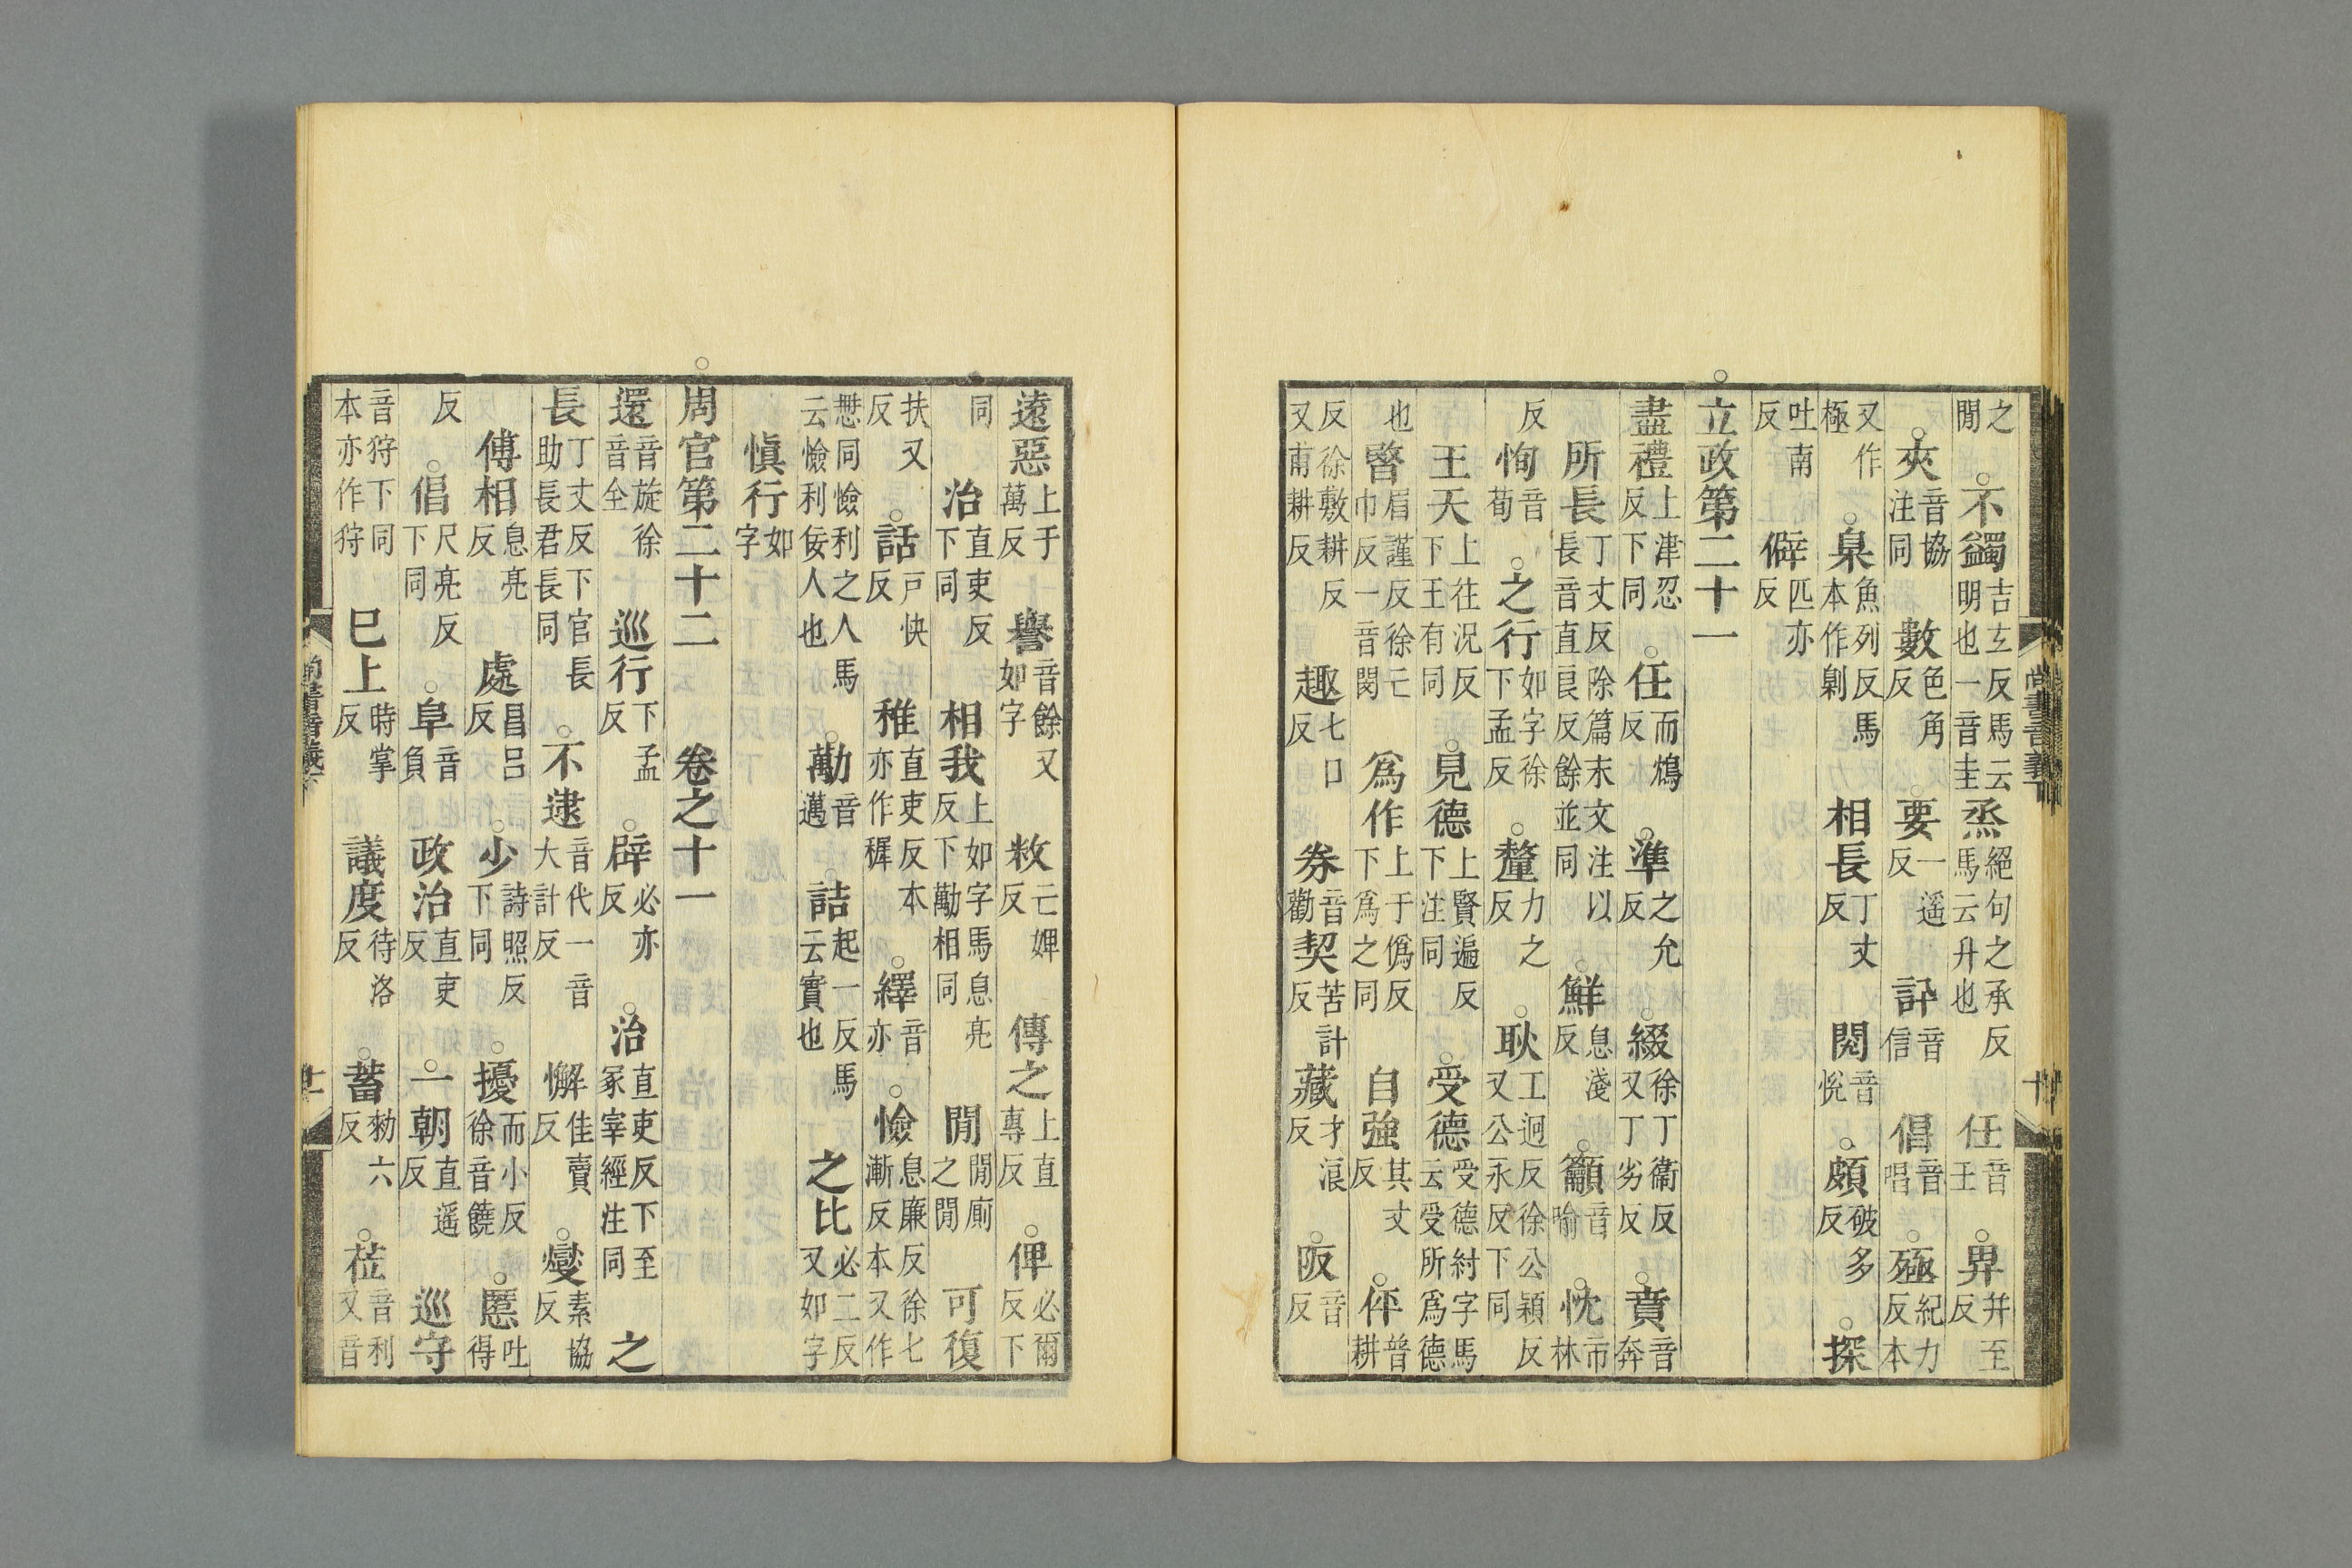 之閒○不蠲吉玄反馬云明也一音圭烝絕句之承反馬云升也任音壬○畀并至反
○夾音協注同數色角反○要一遥反音信倡音唱○殛紀力反本
又作極○臬魚列反馬本作剿相長丁丈反閱音悅○頗破多反○探
吐南反僻匹亦反
○立政第二十一
盡禮上津忍反下同○任而鴆反○準之允反○綴徐丁衞反又丁劣反○賁音奔
所長丁丈反除篇末文注以長音直良反餘並同○鮮息淺反○籲音喻○忱市林
反恂音荀○之行如字徐下孟反○釐力之反○耿工迥反徐公穎反又公永反下同
王天上往況反下王有同○見德上賢遍反下注同○受德受德紂字馬云受所爲德
也暋眉謹反徐亡巾反一音閔爲作上于僞反下爲之同自強其丈反○伻普耕
反徐敷耕反又甫耕反趣七口反券音勸契苦計反藏才浪反○阪音反
遠惡上于萬反譽音餘又如字敉亡婢反傳之上直專反○俾必爾反下
同治直吏反下同相我上如字馬息亮反下勱相同閒閒厠之閒可復
扶又反○話戶快反稚直吏反本亦作稺○繹音亦○憸息廉反徐七漸反本又作
同憸利之人馬云憸利佞人也○勱音邁○詰起一反馬云實也之比必二反又如字
愼行如字
○周官第二十二 卷之十一
還音旋徐音全巡行下孟反○辟必亦反○治直吏反下至冢宰經注同之
長丁丈反下官長助長君長同○不逮音代一音大計反懈佳賣反○燮素協反
傅相息亮反處昌呂反○少詩照反下同○擾而小反徐音饒○慝吐得
反○倡尺亮反下同○阜音負政治直吏反○一朝直遥反巡守
音狩下同本亦作狩巳上時掌反議度待洛反○蓄勑六反○莅音利又音